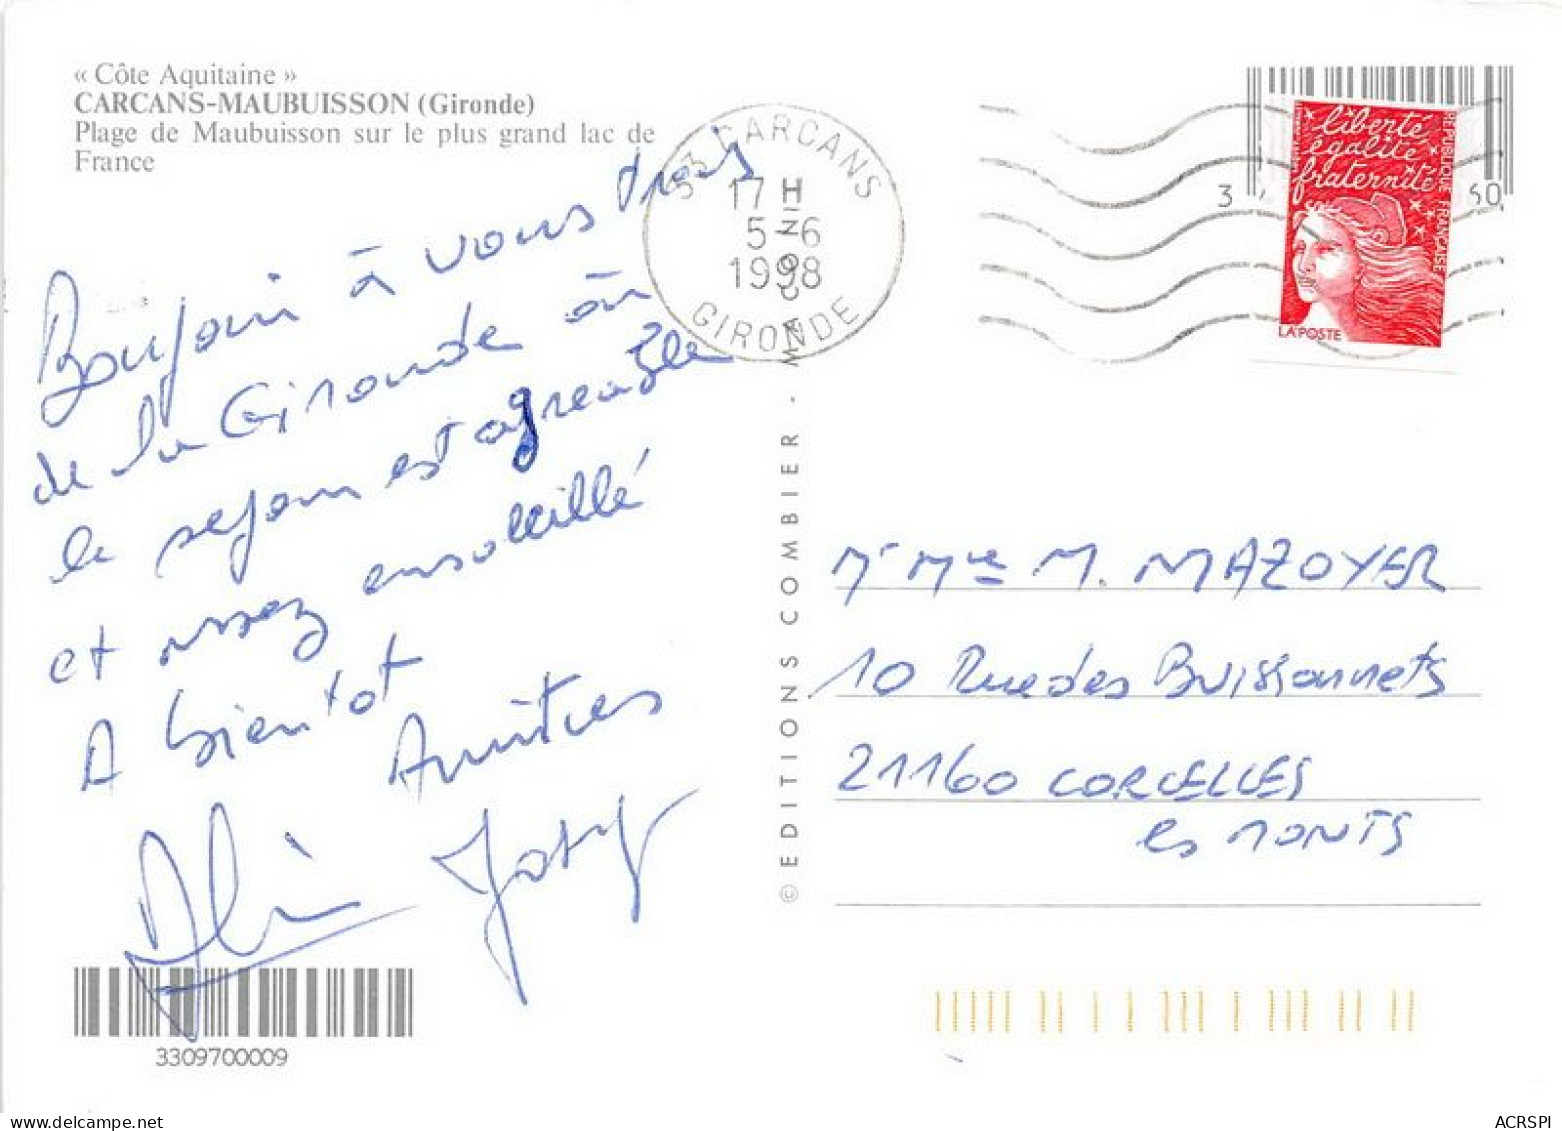 « Côte Aquitaine »
CARCANS-MAUBUISSON (Gironde)
Plage de Maubuisson sur le plus grand lac de
France
33 CARCANS
17 H
5-6
1998
GIRONDE
liberté
égalité
fraternité
REPUBLIQUE FRANÇAISE
LA POSTE
Bonjour à vous trois
de la Gironde où
le sejour est agreable
et assez ensolleillé
A bientot
Amitres
Alain Josy
© EDITIONS COMBIER - MÂCON
Mr Mme M. MAZOYER
10 Rue des Buissonnets
21160 CORCELLES
les MONTS
3309700009
ACRSPI